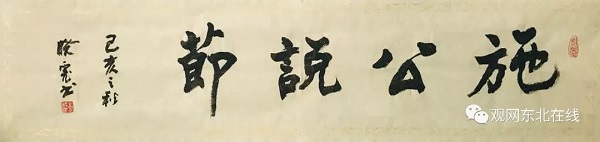 施公說節
己亥之秋
书
观网东北在线